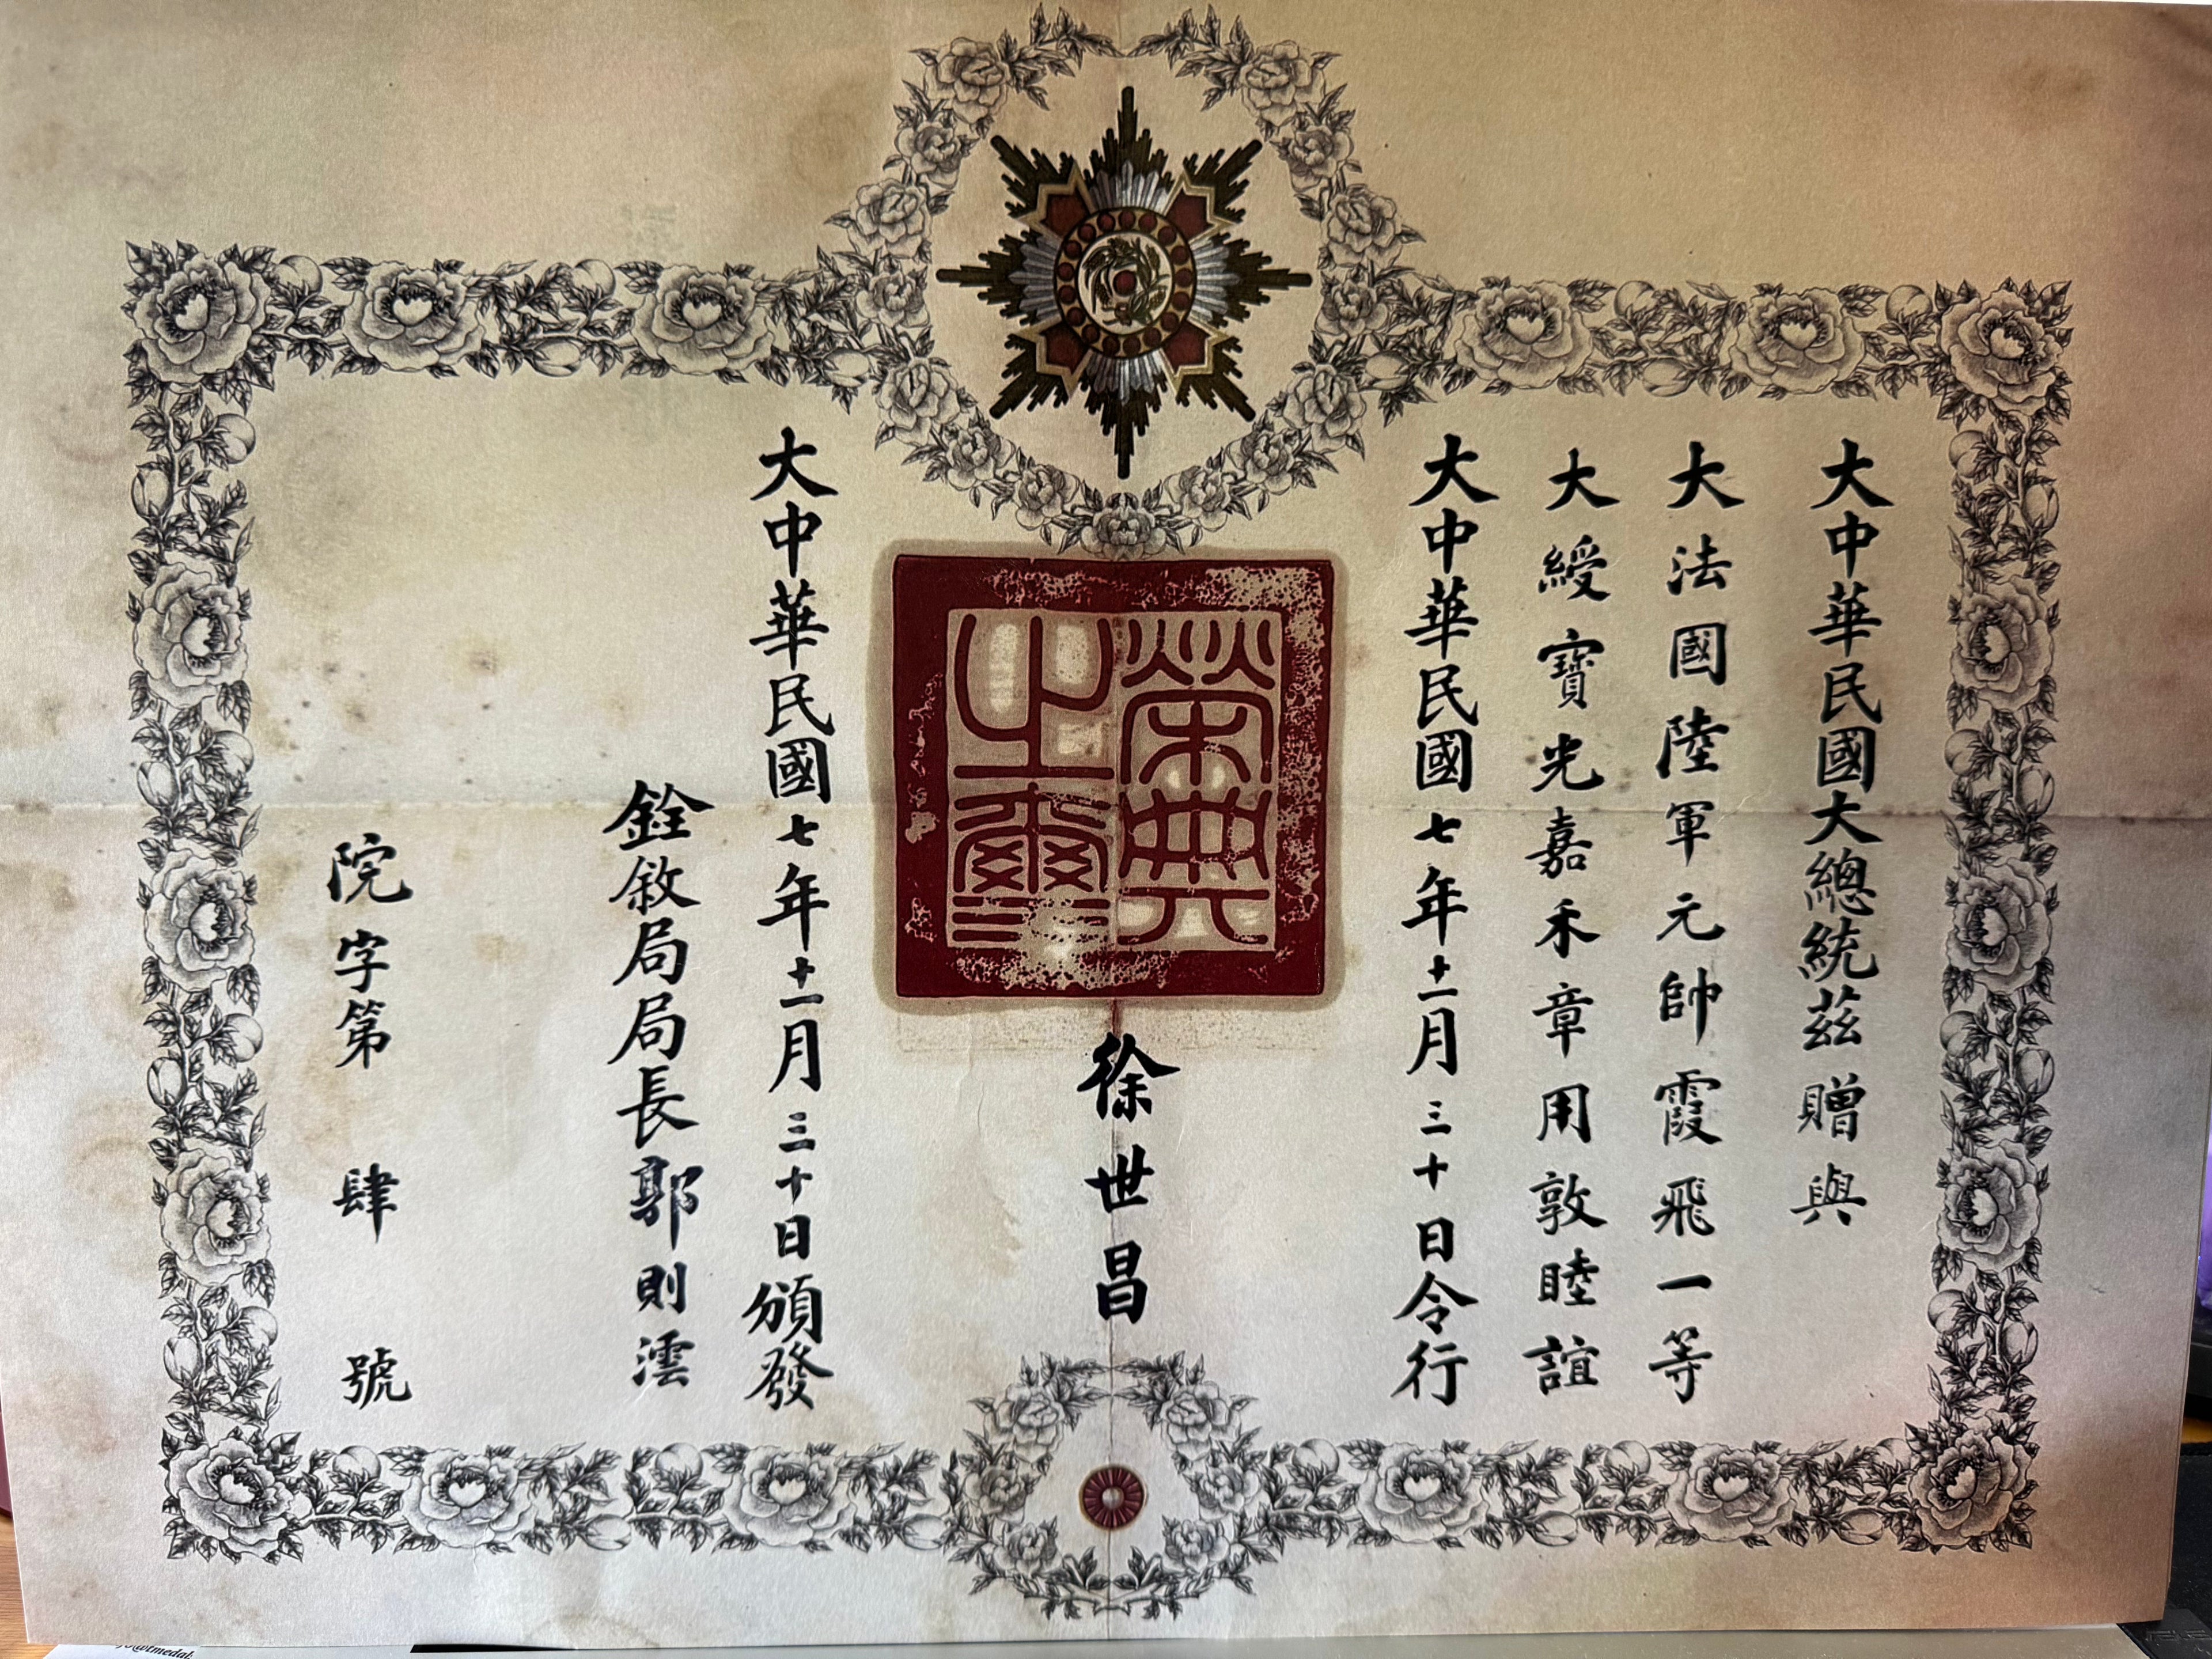 大中華民國大總統茲贈與
大法國陸軍元帥霞飛一等
大綬寶光嘉禾章用敦睦誼
大中華民國七年十一月三十日令行
榮典之璽
徐世昌
大中華民國七年十一月三十日頒發
銓敘局局長郭則澐
院字第肆號